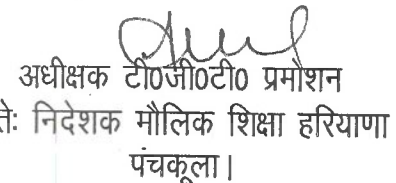 अधीक्षक टी0जी0टी0 प्रमोशन
ते: निदेशक मौलिक शिक्षा हरियाणा
पंचकूला।